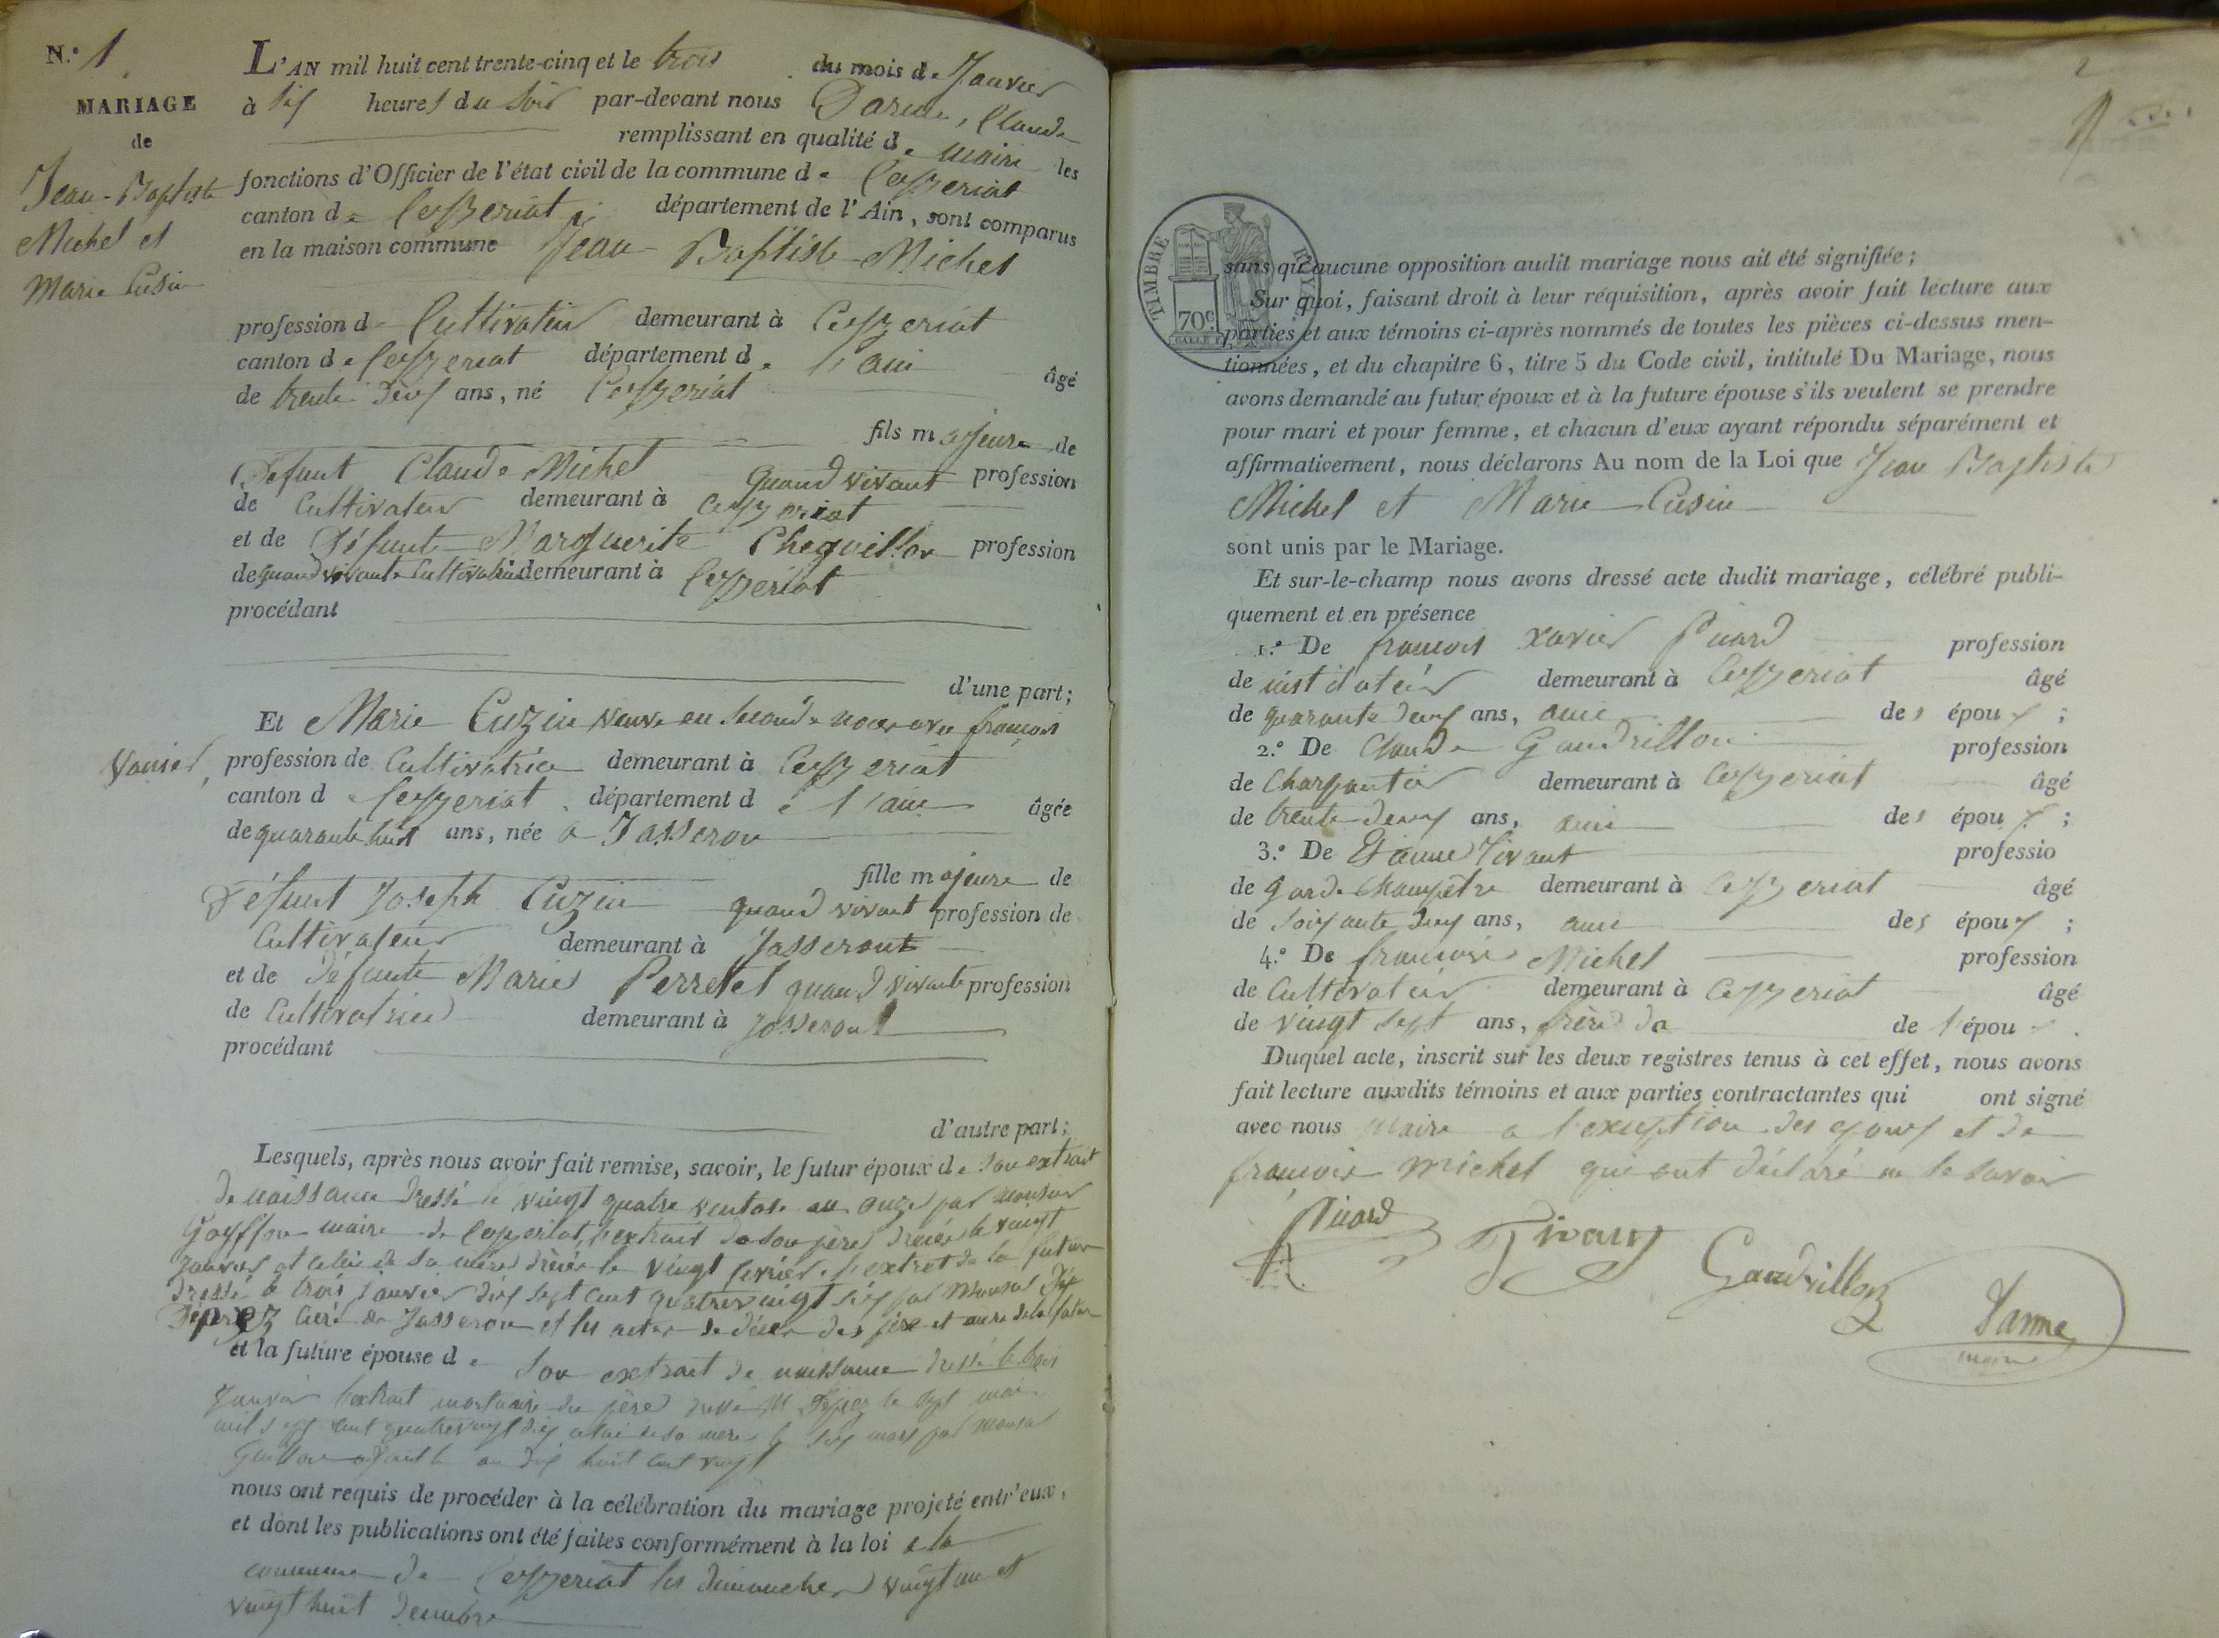 N.º 1
MARIAGE
de
Jean-Baptiste
Michel et
Marie Cusin
L'AN mil huit cent trente-cinq et le trois du mois de Janvier
à six heures du soir par-devant nous Claude
remplissant en qualité de maire les
fonctions d'Officier de l'état civil de la commune de Ceyzeriat
canton de Ceyzeriat département de l'Ain, sont comparus
en la maison commune Jean-Baptiste Michel
profession de Cultivateur demeurant à Ceyzeriat
canton de Ceyzeriat département de l'ain âgé
de trente deux ans, né Ceyzeriat
fils majeure de
Défunt Claude Michel quand vivant profession
de Cultivateur demeurant à Ceyzeriat
et de Défunte Marguerite Chegvillon profession
de quand vivante Cultivatrice demeurant à Ceyzeriat
procédant
d'une part;
Et Marie Cuzin veuve en seconde noces avec françois
Vanier profession de Cultivatrice demeurant à Ceyzeriat
canton de Ceyzeriat département de l'ain âgée
de quarante huit ans, née a Jasseron
fille majeure de
Défunt Joseph Cuzin quand vivant profession de
Cultivateur demeurant à Jasseront
et de défunte Marie Perretet quand vivante profession
de Cultivatrice demeurant à Jasseront
procédant
d'autre part;
Lesquels, après nous avoir fait remise, savoir, le futur époux de son extrait
de naissance dressé le vingt quatre ventose an onze par monsieur
Goyffon maire de Ceyzeriat, l'extrait de son père le vingt
Janvier et celui de sa mère le vingt fevrier, l'extrait de la future
dressé le trois janvier dix sept cent quatrevingt six par Monsieur
Dépréz curé de Jasseron et les actes de décès des père et mère de la future
et la future épouse de son extrait de naissance dressé le trois
Janvier l'extrait mortuaire du père dressé le sept mai
mil sept cent quatrevingt dix celui de sa mère le six mars par monsieur
huit cent vingt
nous ont requis de procéder à la célébration du mariage projeté entr'eux,
et dont les publications ont été faites conformément à la loi a la
commune de Ceyzeriat les dimanches vingt un et
vingt huit Décembre
2
TIMBRE ROYAL
70c
sans qu'aucune opposition audit mariage nous ait été signifiée;
Sur quoi, faisant droit à leur réquisition, après avoir fait lecture aux
parties et aux témoins ci-après nommés de toutes les pièces ci-dessus men-
tionnées, et du chapitre 6, titre 5 du Code civil, intitulé Du Mariage, nous
avons demandé au futur époux et à la future épouse s'ils veulent se prendre
pour mari et pour femme, et chacun d'eux ayant répondu séparément et
affirmativement, nous déclarons Au nom de la Loi que Jean Baptiste
Michel et Marie Cusin
sont unis par le Mariage.
Et sur-le-champ nous avons dressé acte dudit mariage, célébré publi-
quement et en présence
1.º De françois xavier Picard profession
de institateur demeurant à Ceyzeriat âgé
de quarante deux ans, ami des époux;
2.º De Claude Gaudrillon profession
de Charpantier demeurant à Ceyzeriat âgé
de trente deux ans, ami des époux;
3.º De Etienne Tivant professio
de Garde Champêtre demeurant à Ceyzeriat âgé
de soixante deux ans, ami des époux;
4.º De françois Michel profession
de Cultivateur demeurant à Ceyzeriat âgé
de vingt sept ans, frère de l'épou
Duquel acte, inscrit sur les deux registres tenus à cet effet, nous avons
fait lecture auxdits témoins et aux parties contractantes qui ont signé
avec nous maire a l'exception des epoux et de
françois Michel qui ont déclaré ne le savoir
Picard Tivant Gaudrillon
maire